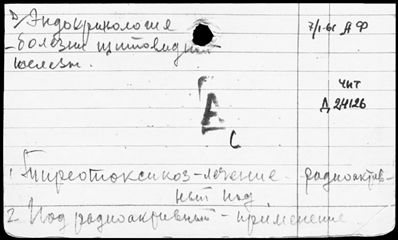 Эндокринология
7/I-61 ДФ
-болезни щитовидной
железы.
ЧИТ
Д 24126
1. Тиреотоксикоз-лечение- радиоактив-
ный иод
2. Иод радиоактивный - применение